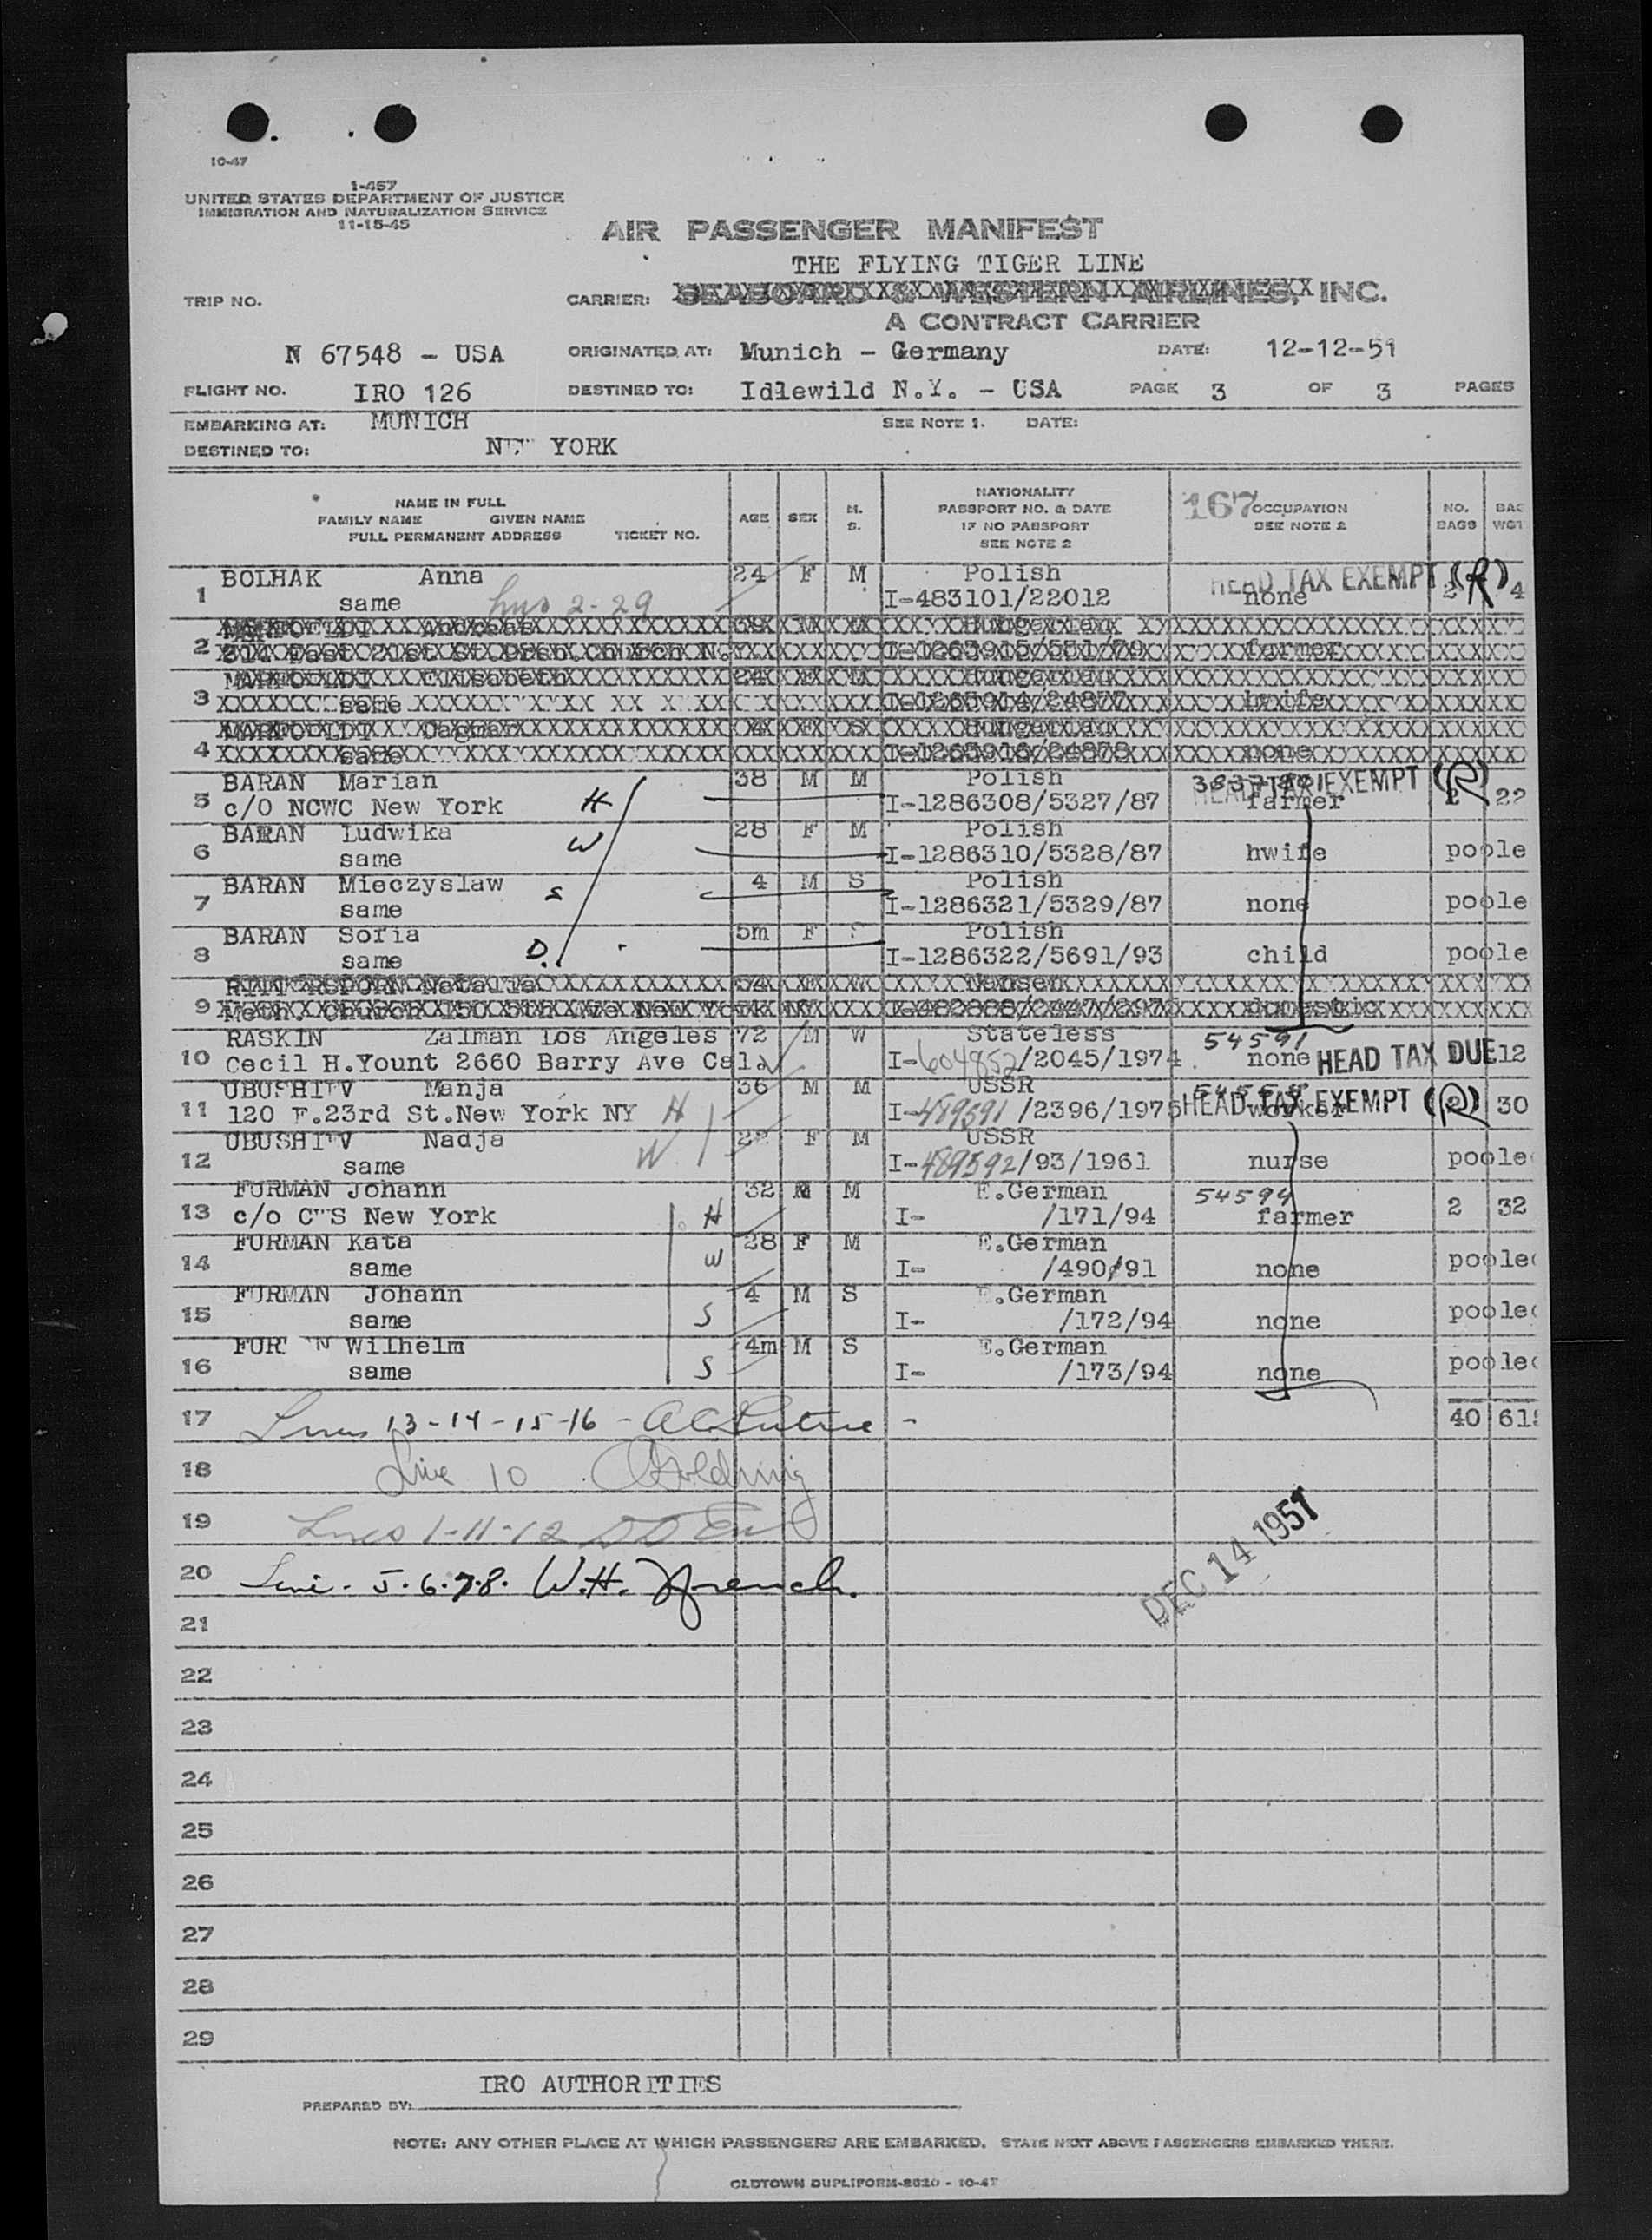 10-47
1-457
UNITED STATES DEPARTMENT OF JUSTICE
IMMIGRATION AND NATURALIZATION SERVICE
11-15-45
AIR PASSENGER MANIFEST
THE FLYING TIGER LINE
TRIP NO. CARRIER: SEABOARD & WESTERN AIRLINES, INC.
A CONTRACT CARRIER
N 67548 - USA ORIGINATED AT: Munich - Germany DATE: 12-12-51
FLIGHT NO. IRO 126 DESTINED TO: Idlewild N.Y. - USA PAGE 3 OF 3 PAGES
EMBARKING AT: MUNICH SEE NOTE 1. DATE:
DESTINED TO: YORK
NAME IN FULL
FAMILY NAME GIVEN NAME
FULL PERMANENT ADDRESS TICKET NO.
AGE SEX M. S.
NATIONALITY
PASSPORT NO. & DATE
IF NO PASSPORT
SEE NOTE 2
167 OCCUPATION
SEE NOTE 2
NO. BAGS
BAG WGT
1 BOLHAK Anna 24 F M Polish HEAD TAX EXEMPT (R)
same 2-29 I-483101/22012 none 2 4
2 Andreas M M Hungarian
314 East 21st St. N.Y. I-1263915/551/79 farmer
3 Elisabeth 24 F M Hungarian
same I-1263914/24877 hwife
4 Dagmar 4 F S Hungarian
same I-1263916/24878 none
5 BARAN Marian 38 M M Polish HEAD TAX EXEMPT (R)
c/O NCWC New York H I-1286308/5327/87 farmer 22
6 BARAN Ludwika 28 F M Polish
same W I-1286310/5328/87 hwife poole
7 BARAN Mieczyslaw 4 M S Polish
same S I-1286321/5329/87 none poole
8 BARAN Sofia 5m F S Polish
same D. I-1286322/5691/93 child poole
9 Natalia 54 F W Nansen
Meth. Church 150 5th Ave New York NY domestic
10 RASKIN Zalman Los Angeles 72 M W Stateless 54591
Cecil H.Yount 2660 Barry Ave Cala I-604852/2045/1974 none HEAD TAX DUE 12
11 Manja 36 M M USSR
120 E.23rd St.New York NY H I-489591 /2396/1975 HEAD TAX EXEMPT (R) worker 2 30
12 Nadja 22 F M USSR
same W I-489592/93/1961 nurse poole
13 FURMAN Johann 32 M M E.German 54594
c/o New York H I- /171/94 farmer 2 32
14 FURMAN Kata 28 F M E.German
same W I- /490/91 none pooled
15 FURMAN Johann 4 M S E.German
same S I- /172/94 none pooled
16 Wilhelm 4m M S E.German
same S I- /173/94 none pooled
17 Lines 13-14-15-16 - 40
18 Line 10 Goldring
19 Lines 1-11-12
20 Line. 5.6.7.8. W.H. French.
DEC 14 1951
21
22
23
24
25
26
27
28
29
IRO AUTHORITIES
PREPARED BY:
NOTE: ANY OTHER PLACE AT WHICH PASSENGERS ARE EMBARKED, STATE NEXT ABOVE PASSENGERS EMBARKED THERE.
OLDTOWN DUPLIFORM-2620 - 10-47